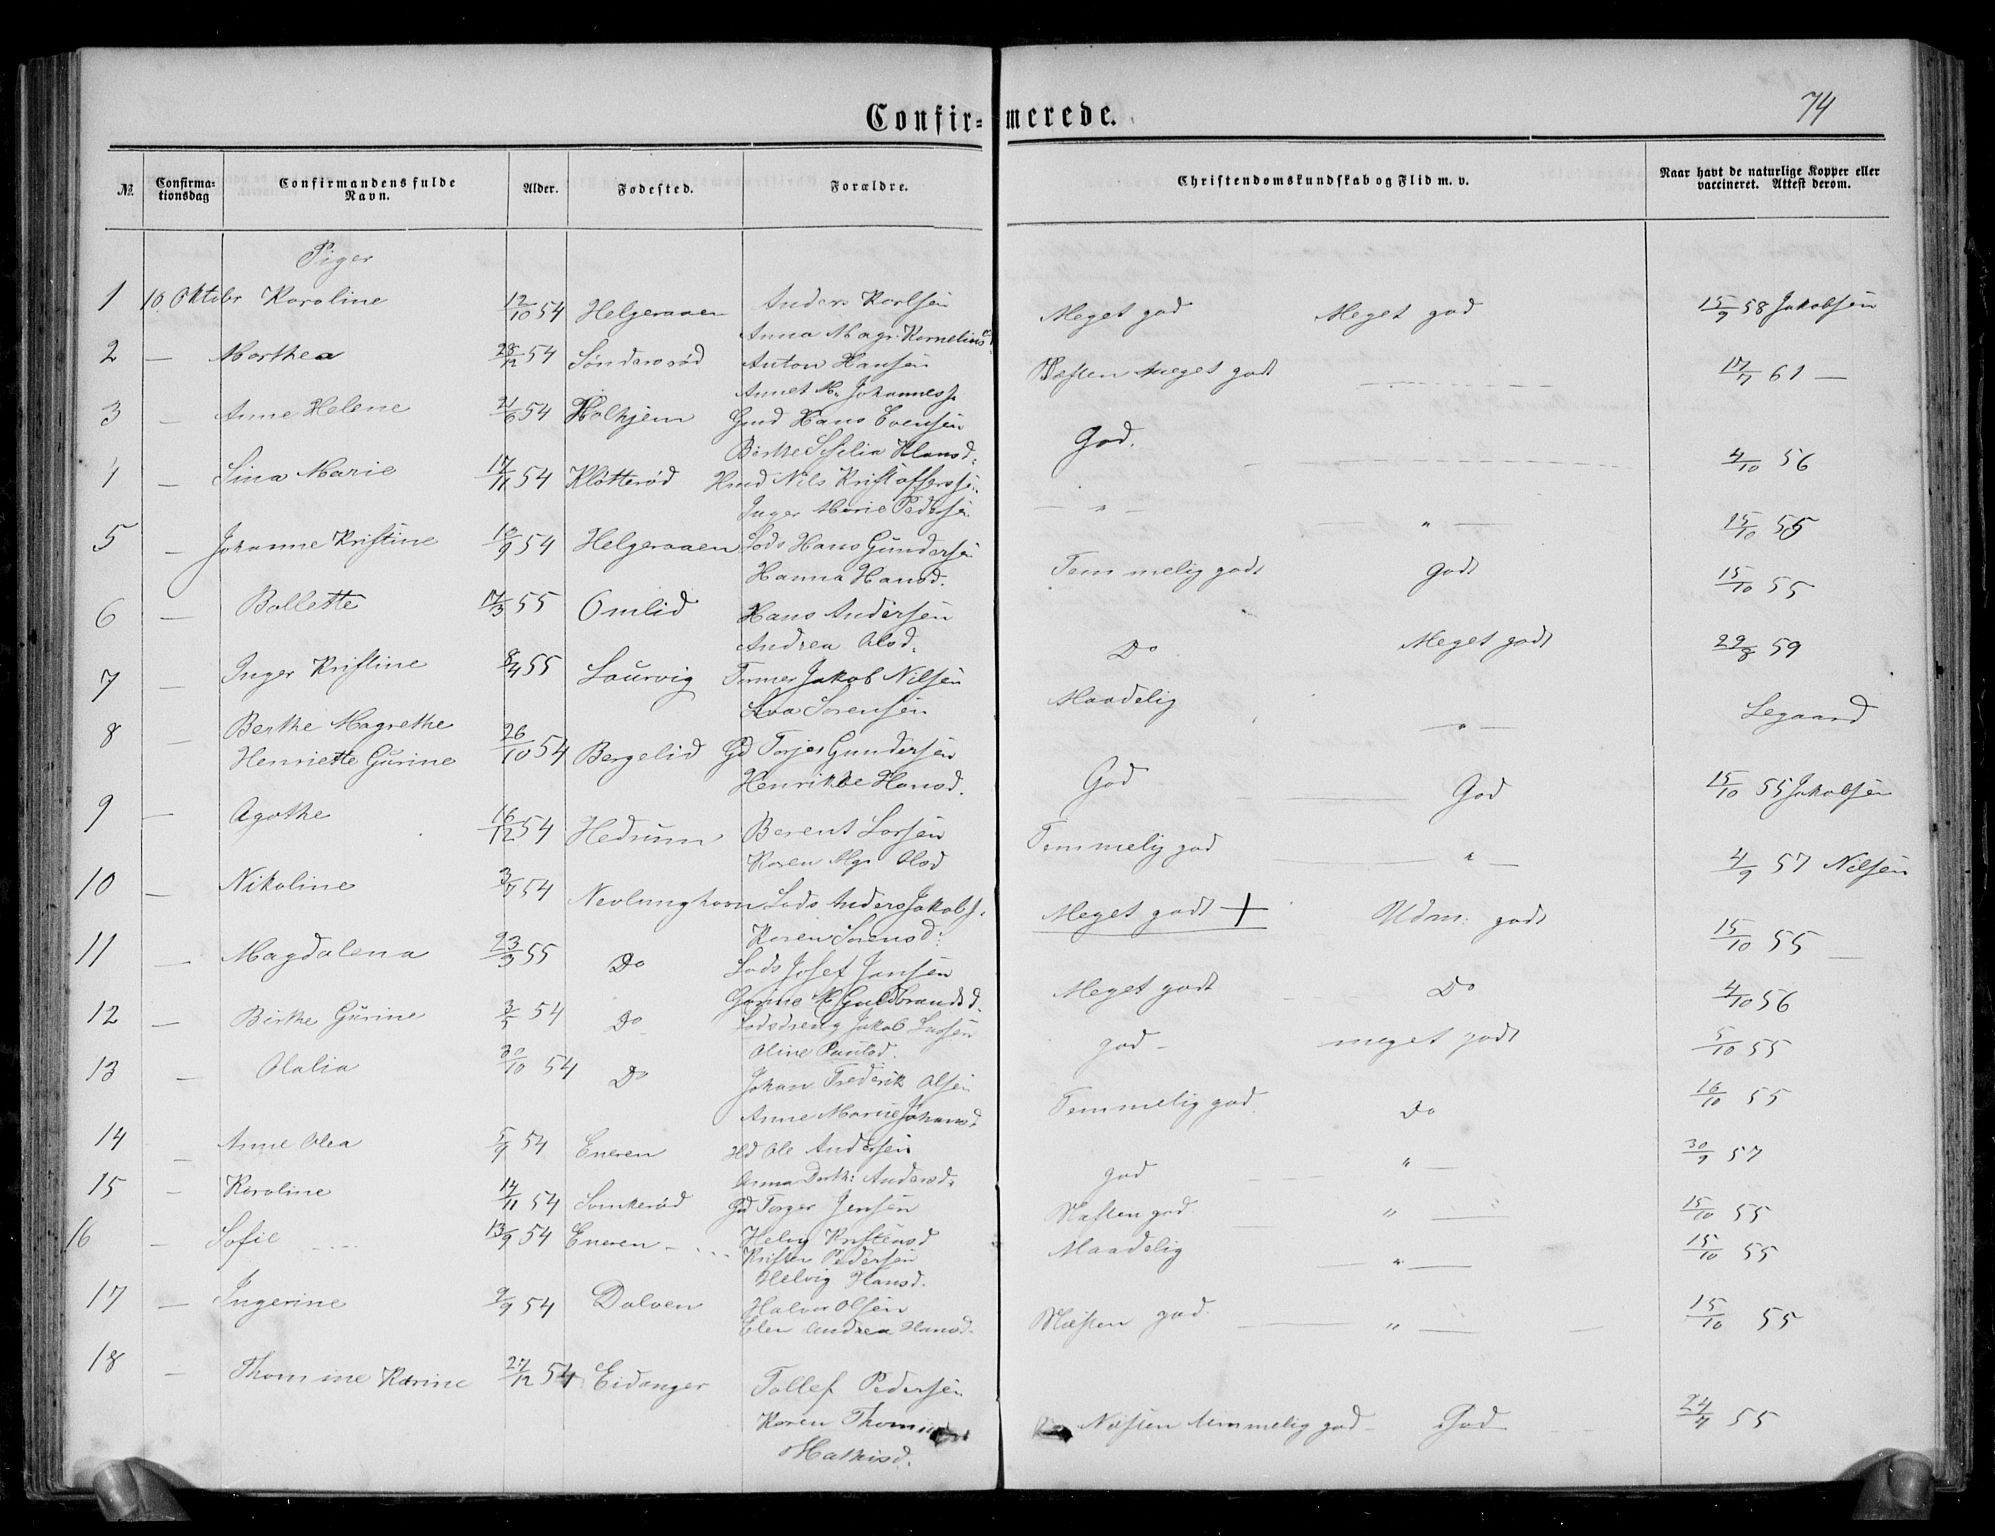 Confirmerede.
74
№.
Confirmationsdag
Confirmandens fulde Navn.
Alder.
Fødested.
Forældre.
Christendomskundskab og Flid m. v.
Naar havt de naturlige Kopper eller vaccineret. Attest derom.
Piger
1 10 Oktober Karoline 12/10 54 Helgeraaen Anders Karlsen Meget god Meget god 15/9 58 Jakobsen
Anna Magr. Kornelius
2 — Marthea 28/12 54 Søndersrød Anton Hansen Næsten meget godt 17/7 61 —
Annet M. Johanness
3 — Anne Helene 21/6 54 Holkjem Gmd Hans Evensen God. 4/10 56
Birthe Sesilia Hansd.
4 — Sina Marie 17/11 54 Klåtterød Hmd Nils Kristoffersen — " — — " — 15/10 55
Inger Marie Pedersen
5 — Johanne Kristine 18/9 54 Helgeraaen Lods Hans Gundersen Temmelig godt Godt 15/10 55
Hanna Hansd.
6 — Bollette 17/3 55 Omlid Hans Andersen Do Meget godt 22/8 59
Andrea Olsd.
7 — Inger Kristine 8/4 55 Laurvig Tømmer Jakob Nilsen Maadelig " — Legaard
Eva Sørensen
8 — Berthe Magrethe
Henriette Gurine 26/10 54 Bergelid Gd Torjer Gundersen God — God 15/10 55 Jakobsen
Henrikke Hansd.
9 — Agathe 16/12 54 Hedrum Berent Larsen Temmelig god — " — 4/9 57 Nilsen
Karen Mgr Olsd
10 — Nikoline 3/7 54 Nevlunghavn Lods Anders Jakobs. Meget godt + Udm: godt 15/10 55 —
Karen Sørensd.
11 — Magdalena 23/3 55 Do Lods Josef Jansen Meget godt Do 4/10 56
Gurine M Guldbrandsd.
12 — Birthe Gurine 3/5 54 Do Lodsdreng Jakob Larsen god — meget godt 5/10 55
Oline Paulsd.
13 — Olalia 30/10 54 Do Johan Frederik Olsen Temmelig god. Do 16/10 55
Anne Marie Johansd
14 — Anne Olea 5/9 54 Eneren Hd Ole Andersen god " — 30/9 57
Anna Dorth: Andersd.
15 — Karoline 14/11 54 Somkerød Gd Torger Jensen Næsten god. — " — 15/10 55
Helvig Kristensd
16 — Sofie 13/9 54 Eneren Kristen Pedersen Maadelig — " — 15/10 55
Helvig Hansd.
17 — Ingerine 9/9 54 Dolven Halvor Olsen Næsten god. — " — 15/10 55
Elen Andrea Hansd.
18 — Thomine Karine 27/12 54 Eidanger Tollef Pedersen Næsten temmelig god — God 24/7 55
Karen Thomine
Mathisd.